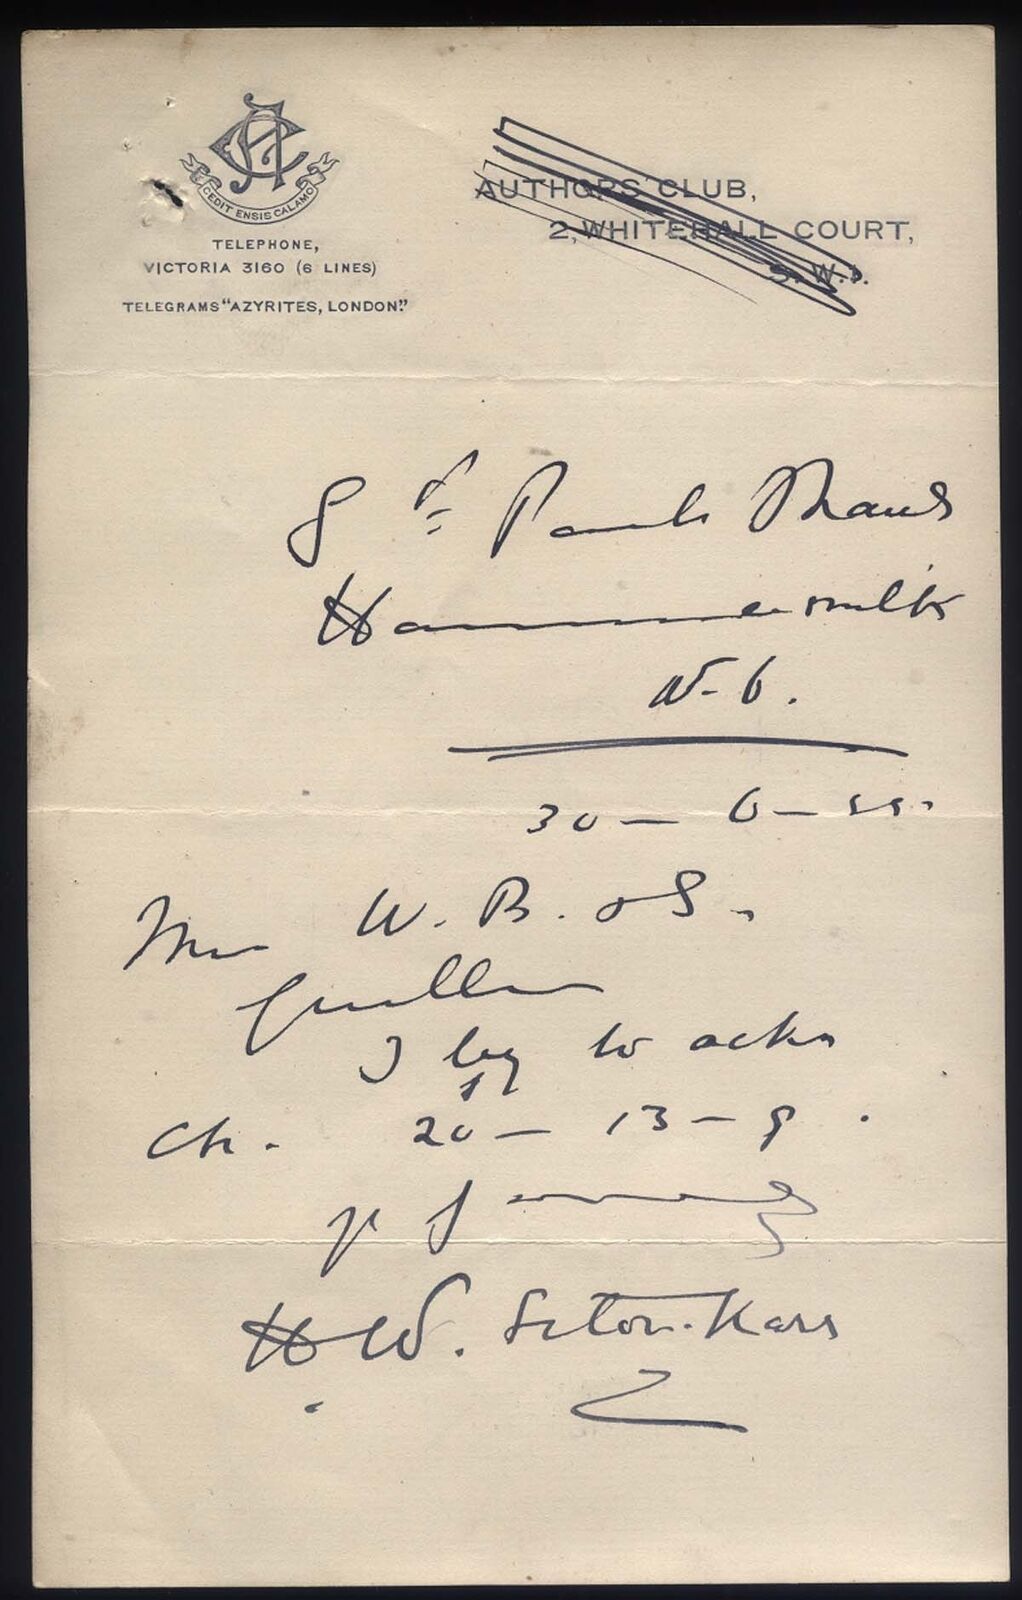 CEDIT ENSIS CALAMO
TELEPHONE,
VICTORIA 3160 (6 LINES)
TELEGRAMS "AZYRITES, LONDON."
AUTHORS' CLUB,
2, WHITEHALL COURT,
S.W.1.
St Pauls Mans
Hammersmith
W-6.
30 - 6 - 22.
W. B. & S.
I beg to ackn
Ch. 20 - 13 - 9.
H. W. Seton-Karr